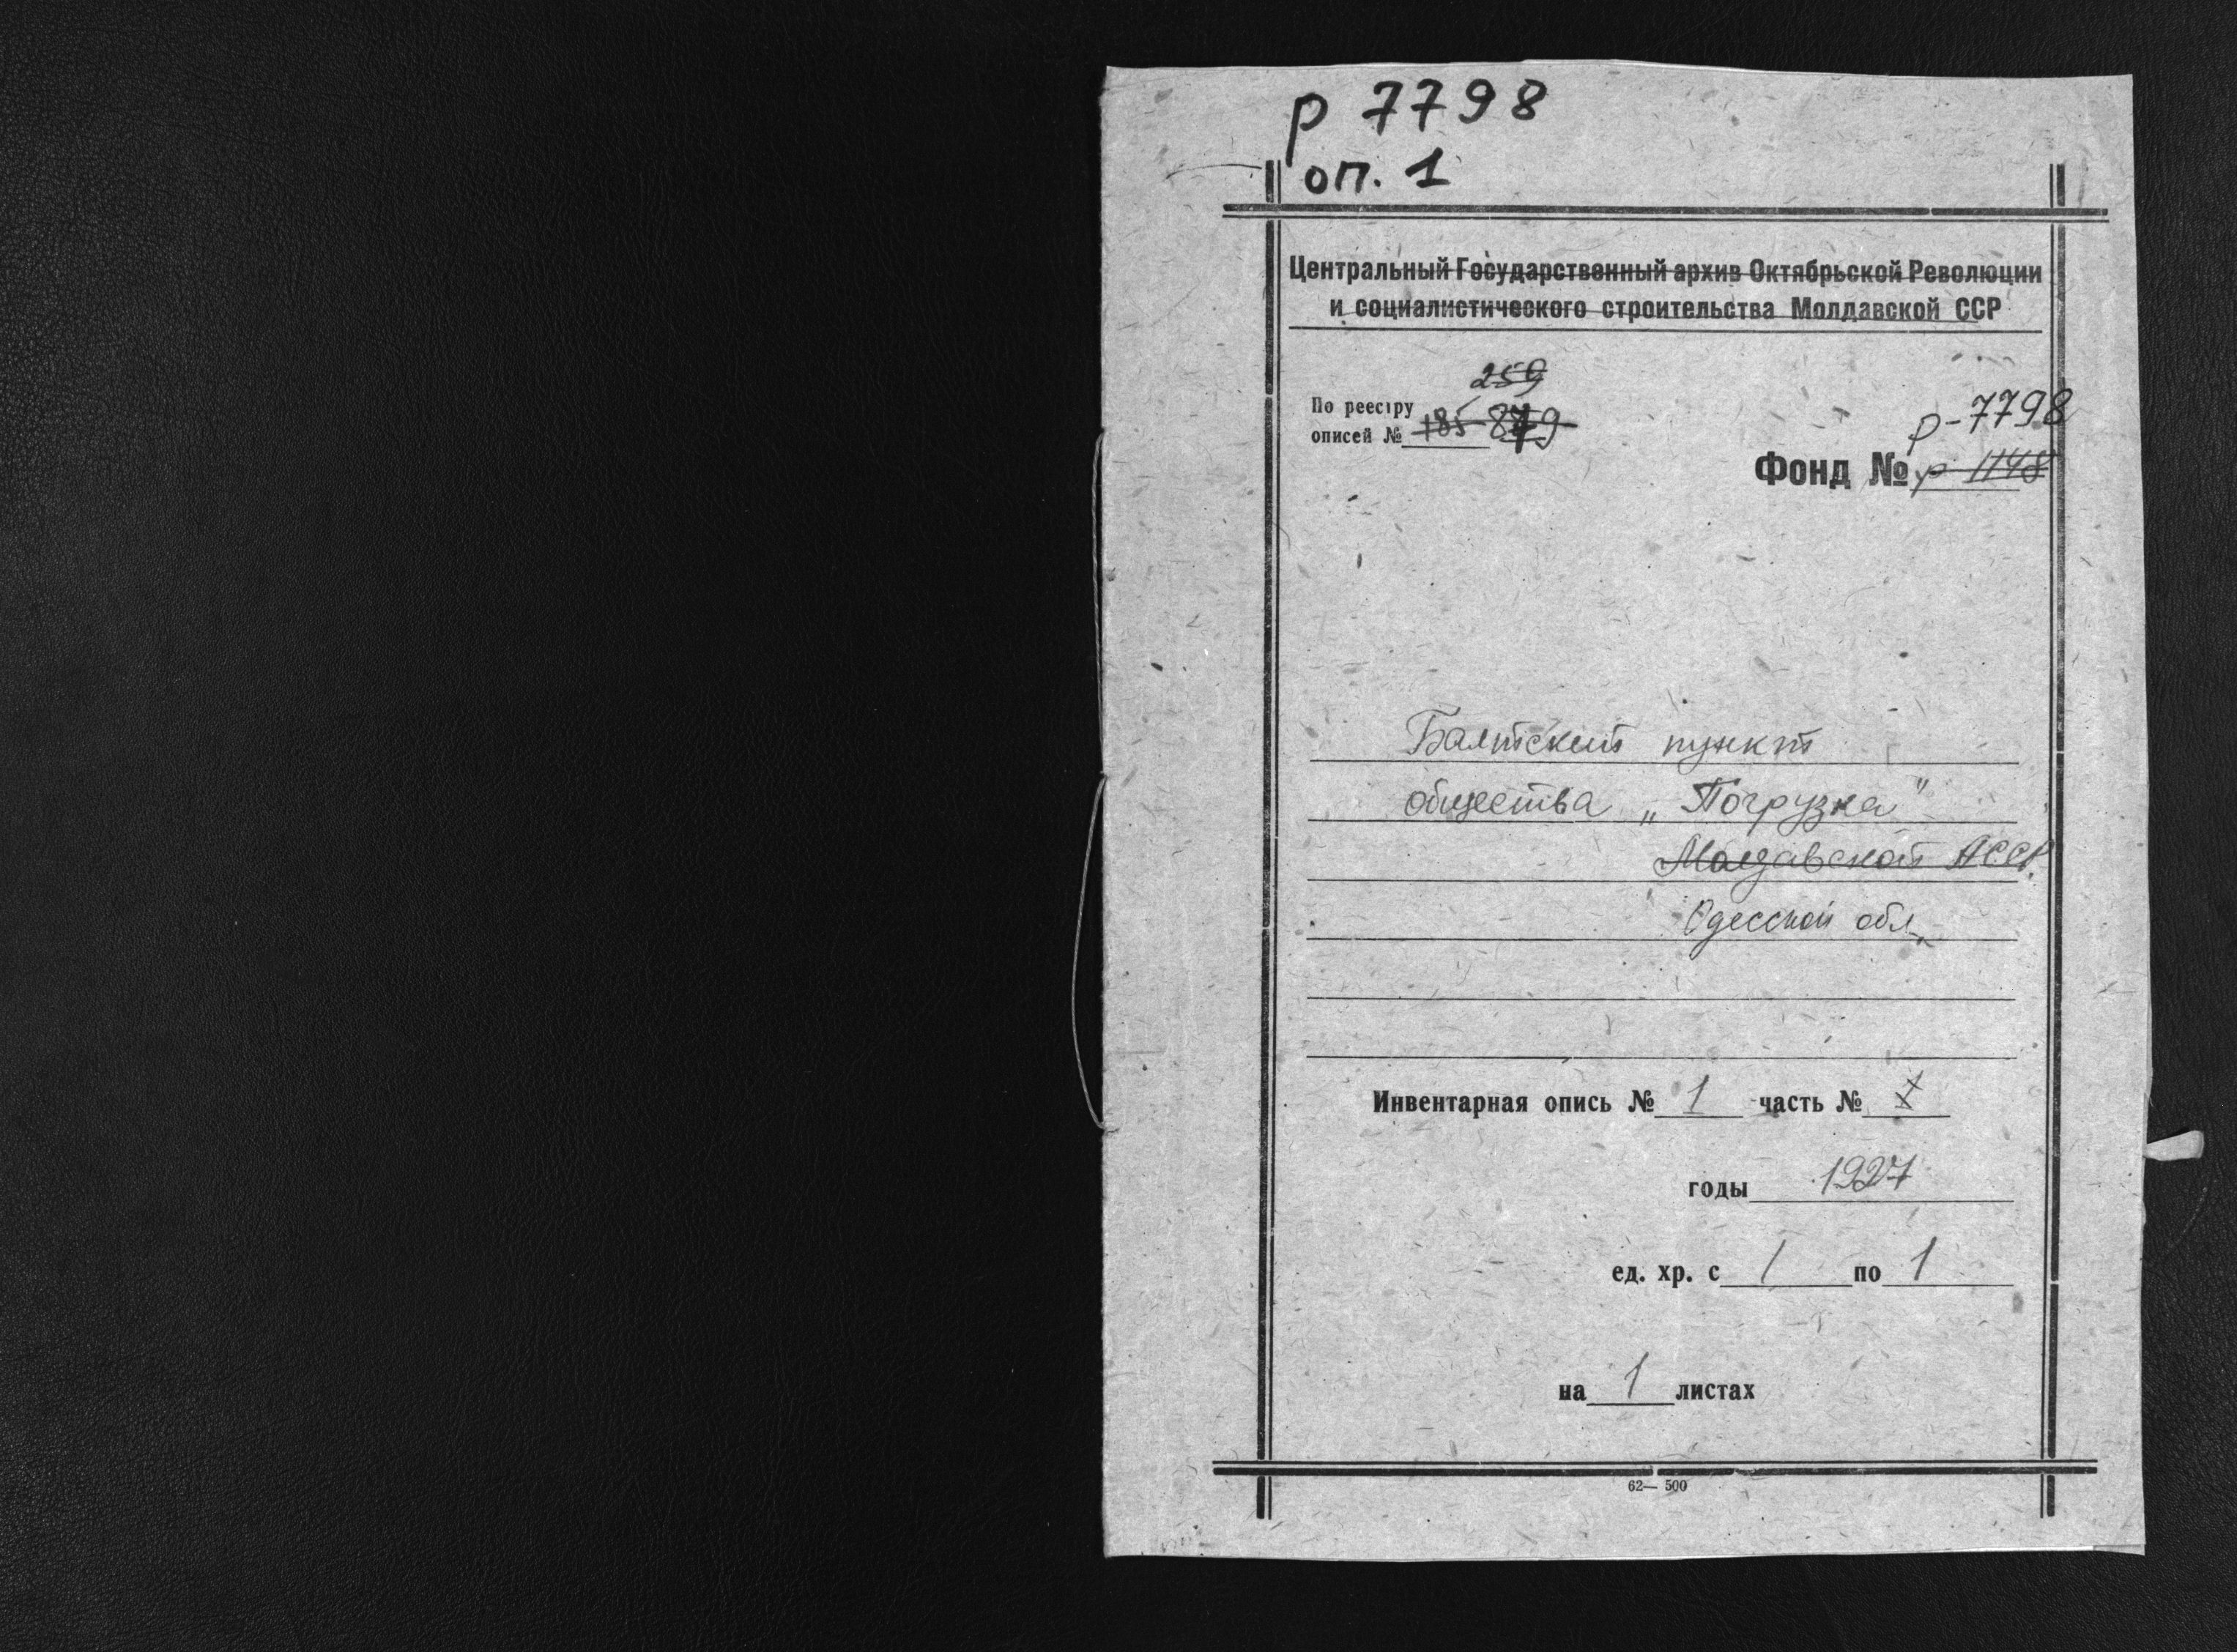 р 7798
оп. 1
Центральный Государственный архив Октябрьской Революции
и социалистического строительства Молдавской ССР
259
По реестру
описей № 185
р-7798
Фонд № р-1148
Балтский пункт
общества „Погрузка"
Молдавской АССР.
Одесской обл.
Инвентарная опись № 1 часть №
годы 1927
ед. хр. с 1 по 1
на 1 листах
62— 500